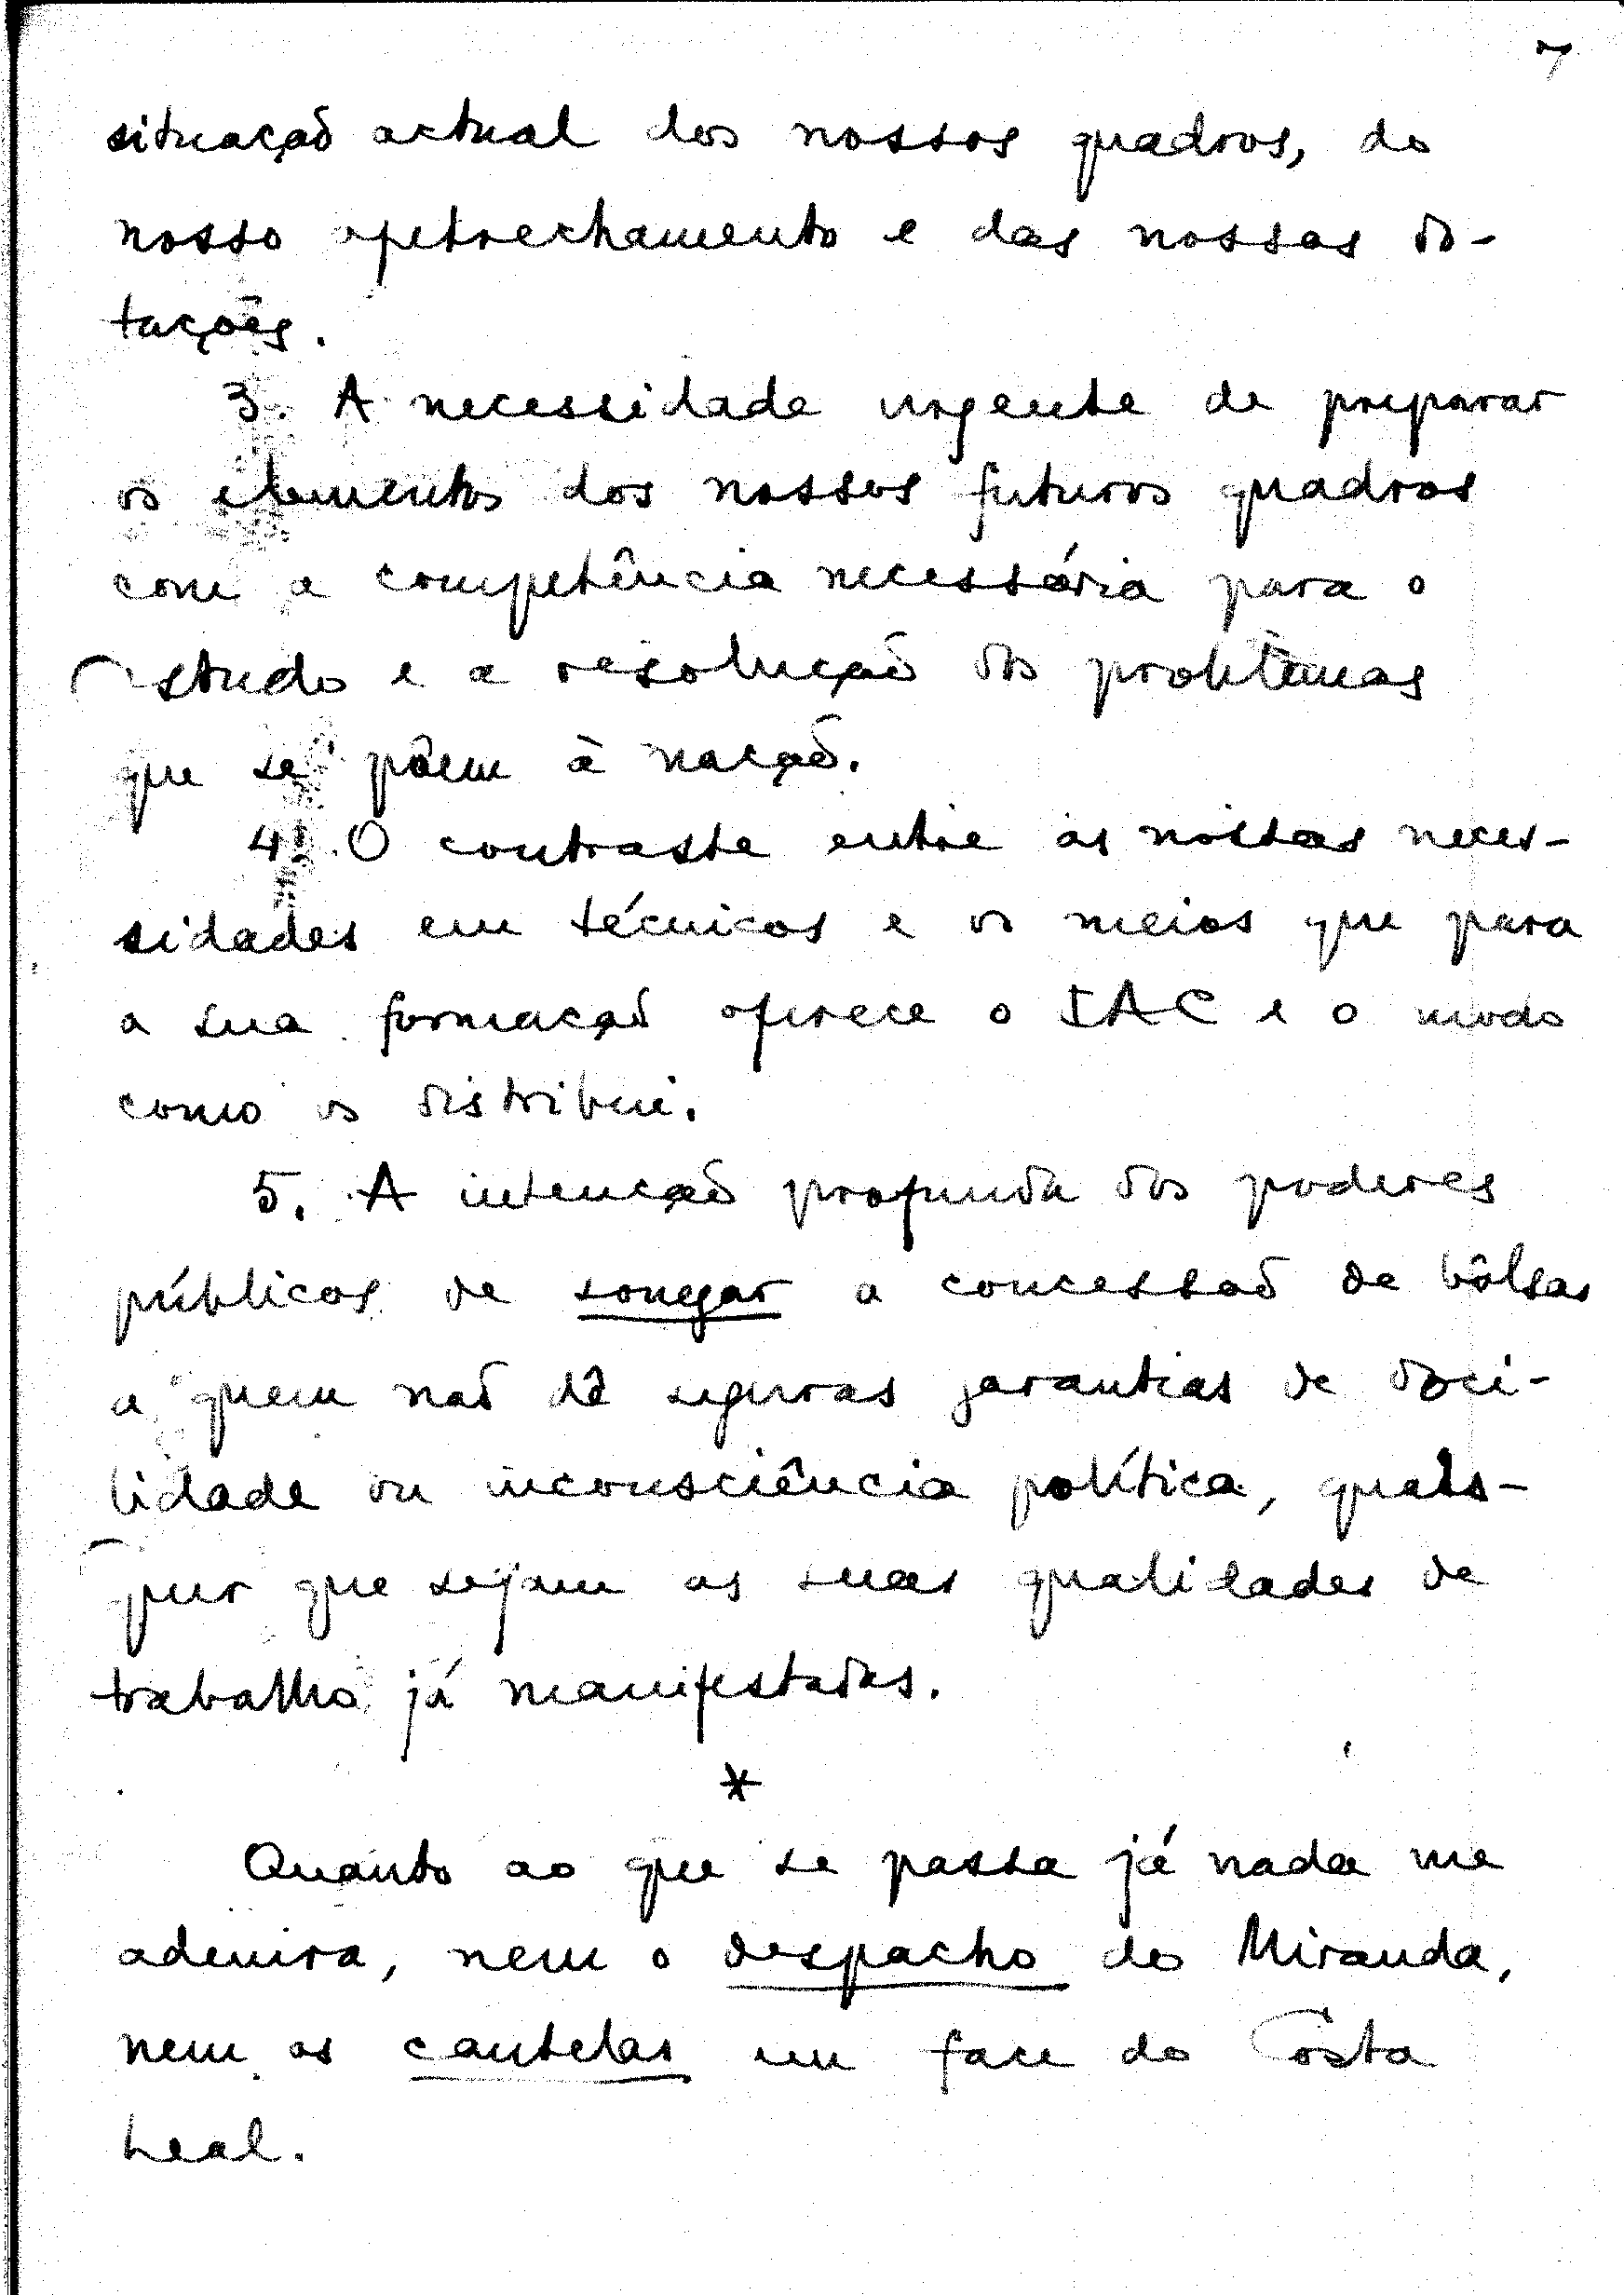 7
situação actual dos nossos quadros, do
nosso apetrechamento e das nossas do-
tações.
3. A necessidade urgente de preparar
os elementos dos nossos futuros quadros
com a competência necessária para o
estudo e a resolução dos problemas
que se põem à nação.
4. O contraste entre as nossas neces-
sidades em técnicos e os meios que para
a sua formação oferece o IAC e o modo
como os distribui.
5. A intenção profunda dos poderes
públicos de sonegar a concessão de bôlsas
a quem não dê seguras garantias de doci-
lidade ou inconsciência política, quais-
quer que sejam as suas qualidades de
trabalho já manifestadas.
*
Quanto ao que se passa já nada me
admira, nem o despacho do Miranda,
nem as cautelas em face do Costa
Leal.